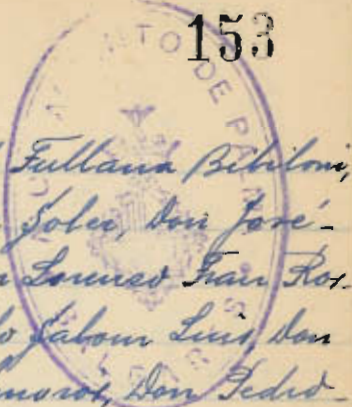 153
TO DE PA
Fullana Bibiloni,
Soler, Don José-
Lorenzo Fran Ros-
Jabour Luis, Don
Don Pedro-